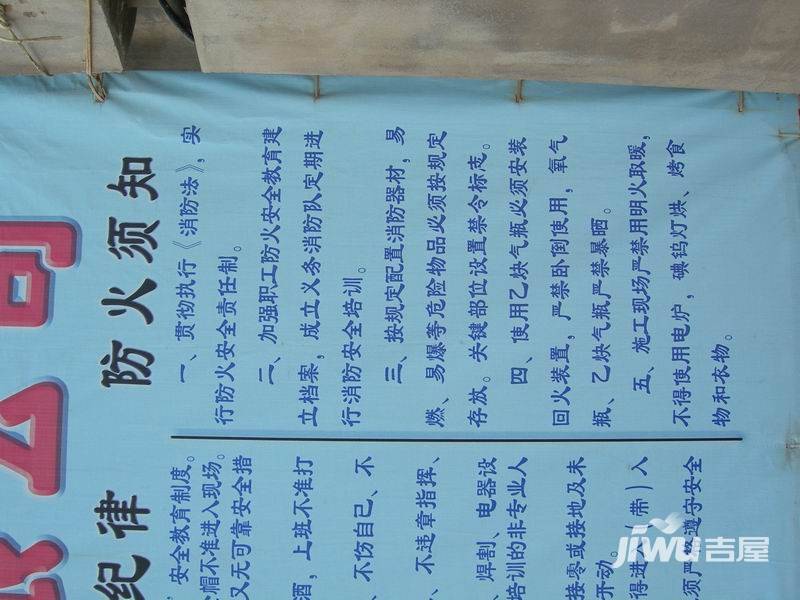 司
公
防火须知
一、贯彻执行《消防法》，实
行防火安全责任制。
二、加强职工防火安全教育建
立档案，成立义务消防队定期进
行消防安全培训。
三、按规定配置消防器材，易
燃、易爆等危险物品必须按规定
存放。关键部位设置禁令标志。
四、使用乙炔气瓶必须安装
回火装置，严禁卧倒使用，氧气
瓶、乙炔气瓶严禁暴晒。
五、施工现场严禁用明火取暖，
不得使用电炉，碘钨灯烘、烤食
物和衣物。
纪律
安全教育制度。
帽不准进入现场。
又无可靠安全措
酒，上班不准打
、不伤自己、不
、不违章指挥、
、焊割、电器设
培训的非专业人
接零或接地及未
开动。
得进入（带）入
须严格遵守安全
JIWU吉屋